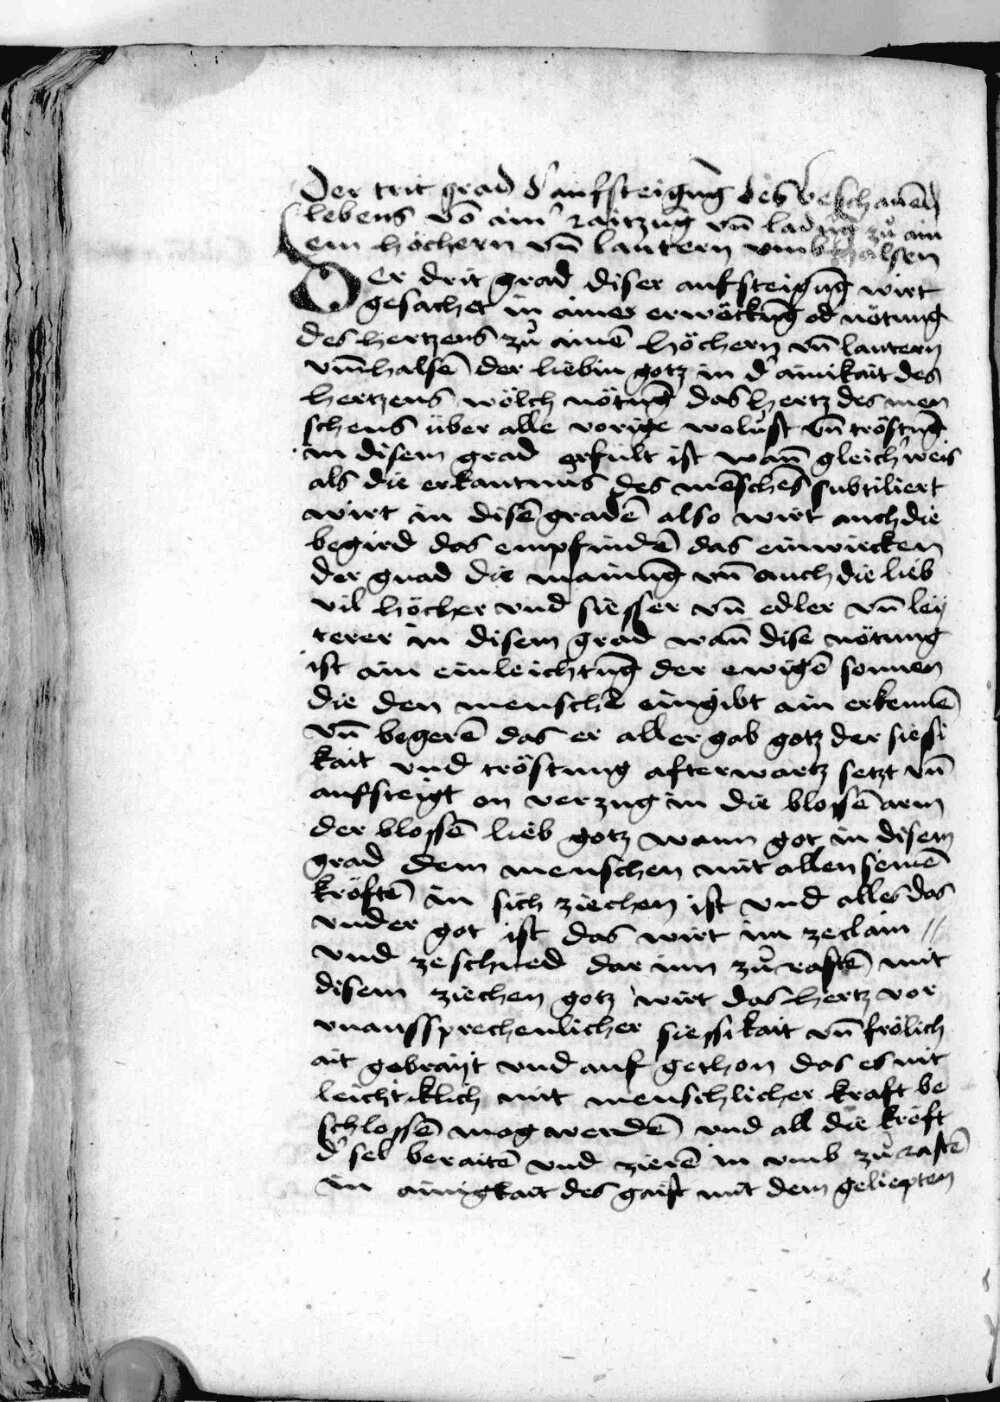 Der trit grad d' aufsteigūg des beschauēd
lebens vō aim' raitzug vn̄ ladūg zů ain
em höchern vn̄ lautern vmbhalsen
Der drit grad diser aufsteigūg wirt
gesachet in ainer erwöckūg od nötung
des hertzens zů ainē höchern vn̄ lautern
vm̄halsē der liebin gotz in d' ainikait des
hertzens wölch nötūg das hertz des men
schens über alle vorige wolust vn̄ tröstūg
in disem grad erfült ist wan̄ gleich weis
als die erkantnus des mēschēs subtiliert
wirt in disē gradē also wirt auch die
begird das empfindē das einwircken
der gnad die mainūg vn̄ auch die lieb
vil höcher vnd siesser vn̄ edler vn̄ ley
terer in disem grad wan̄ dise nötung
ist ain einleichtūg der ewigē sonnen
die den menschē eingibt ain erkennē
vn̄ begerē das er all ergab gotz der siessi
kait vnd tröstung afterwartz setzt vn̄
aufsteigt on verzug in die blossē arm
der blossē lieb gotz wann got in disem
grad dem menschen mit allen seinē
kröftē in sich ziechen ist vnd alles das
vnder got ist das wirt im ze clain //
vnd ze schned dar inn zů rastē mit
disem ziechen gotz wirt das hertz vor
vnaussprechenlicher siessikait vn̄ frölich
ait gebrayt vnd auf gethon das es nit
leichtiklich mit menschlicher kraft be
schlossē mag werdē vnd all die kröft
d' sel beraitē vnd zierē in vmb zů rastē
in ainigkait des gaist mit dem geliepten